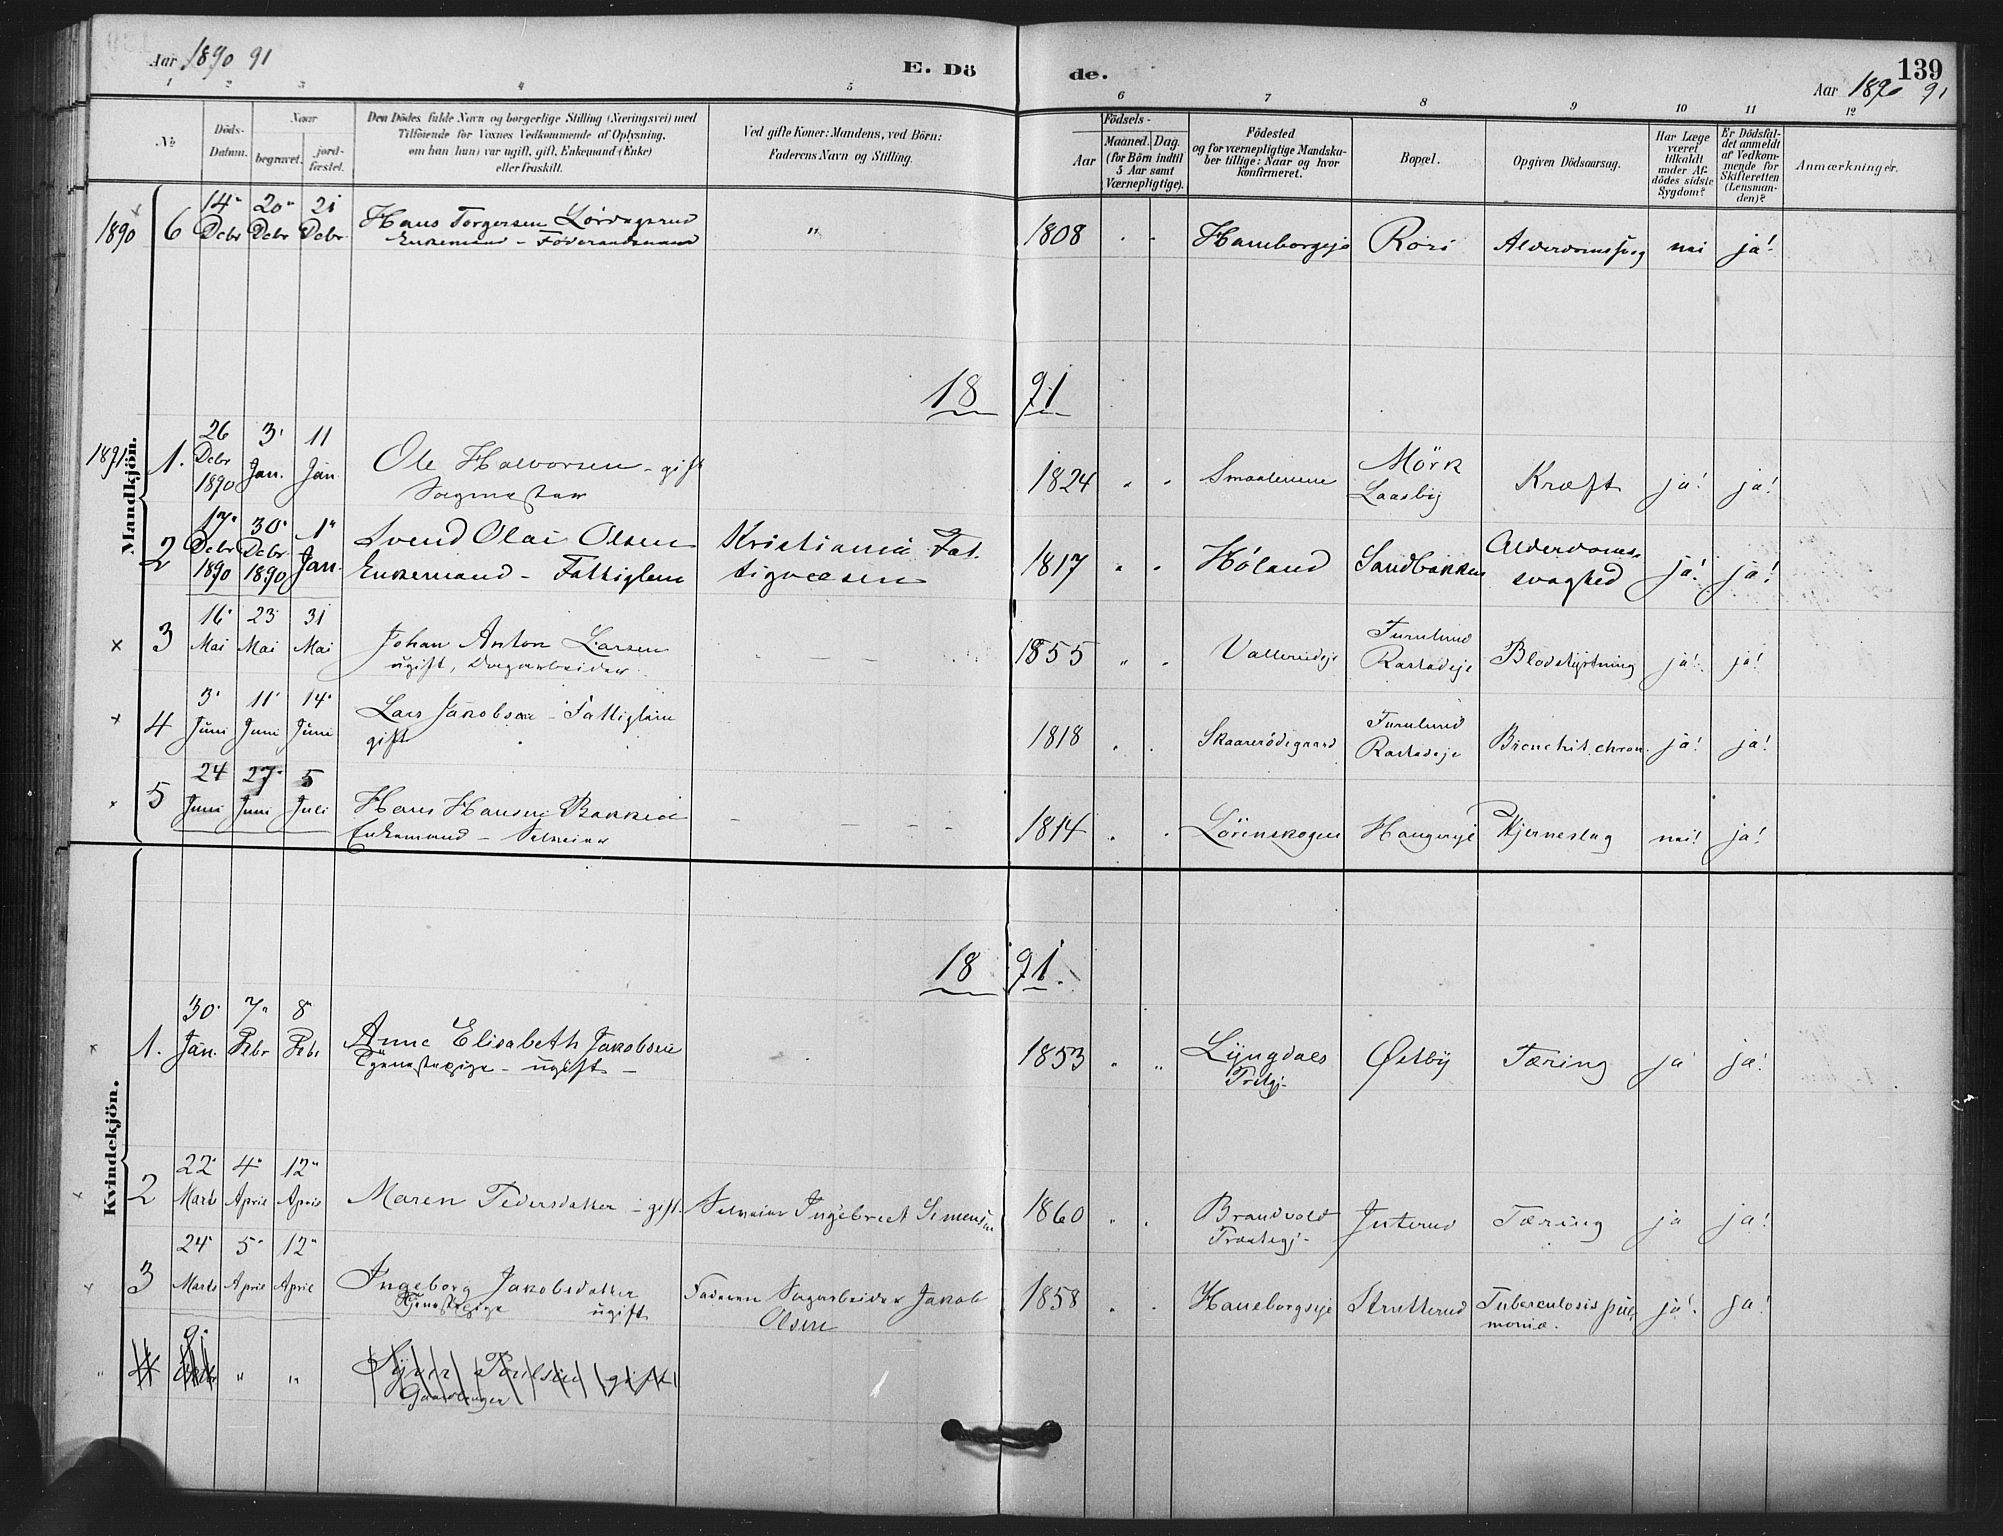 Aar 1890 91
E. Dö de.
139
Aar 1890 91
1 2 3 4 5 6 7 8 9 10 11 12
No
Döds-Datum.
Naar
begravet.
jord-fæstet.
Den Dödes fulde Navn og borgerlige Stilling (Næringsvei) med
Tilföiende for Voxnes Vedkommende af Oplysning,
om han (hun) var ugift, gift, Enkemand (Enke)
eller fraskilt.
Ved gifte Koner: Mandens, ved Börn:
Faderens Navn og Stilling.
Födsels-
Aar
Maaned. Dag.
(for Börn indtil
5 Aar samt
Værnepligtige).
Födested
og for værnepligtige Mandska-
ber tillige: Naar og hvor
konfirmeret.
Bopæl.
Opgiven Dödsaarsag.
Har Læge
været
tilkaldt
under Af-
dödes sidste
Sygdom?
Er Dödsfal-
det anmeldt
af Vedkom-
mende for
Skifteretten
(Lensman-
den)?
Anmærkninger.
1890 6 14 Decbr 20 Decbr 21 Decbr Hans Torgersen Lørdagsrud
Enkemand - Föderaadsmand
" 1808 " " Haneborgeje Kørs Alderdomssvag nei ja!
18 91
Mandkjön.
1891 1. 26 Decbr 1890 3 Jan. 11 Jan Ole Halvorsen - gift
Sagmester
1824 " " Smaalenene Mörk
Laasby Kræft ja! ja!
2 17 Decbr 1890 30 Decbr 1890 1 Jan. Svend Olai Olsen
Enkemand - Fattiglem
Kristiania Fat-
tigvæsen
1817 " " Høland Sandbakken Alderdoms-
svaghed ja! ja!
3 16 Mai 23 Mai 31 Mai Johan Anton Larsen
ugift, Dagarbeider
1855 " " Furulund
Rastadeje Blodstyrtning ja! ja!
4 3 Juni 11 Juni 14 Juni Lars Jakobsen - Fattiglem
gift
1818 " " Skaarerødegaard Furulund
Rastadeje Bronchit. chron. ja! ja!
5 24 Juni 27 Juni 5 Juli Hans Hansen Bakkeid
Enkemand - Selveier
1814 " " Lörenskogen Hjerneslag nei! ja!
Kvindekjön.
18 91
1. 30 Jan. 7 Febr 8 Febr Anne Elisabeth Jakobsen
Tjenestepige - ugift -
1853 " " Lyngdals
Østby Tæring ja ja!
2 22 Marts 4 April 12 April Maren Pedersdatter - gift Selveier Ingebret Simensen
1860 " " Brandvold
Tæring ja ja!
3 24 Marts 5 April 12 April Ingeborg Jakobsdatter
Tjenestepige ugift
Faderen Sagarbeider Jakob
Olsen
1858 " " Haneborgseje Strutterud Tuberculosis pul-
moniæ. ja! ja!
4 9 " "
gift
Gaardbruger